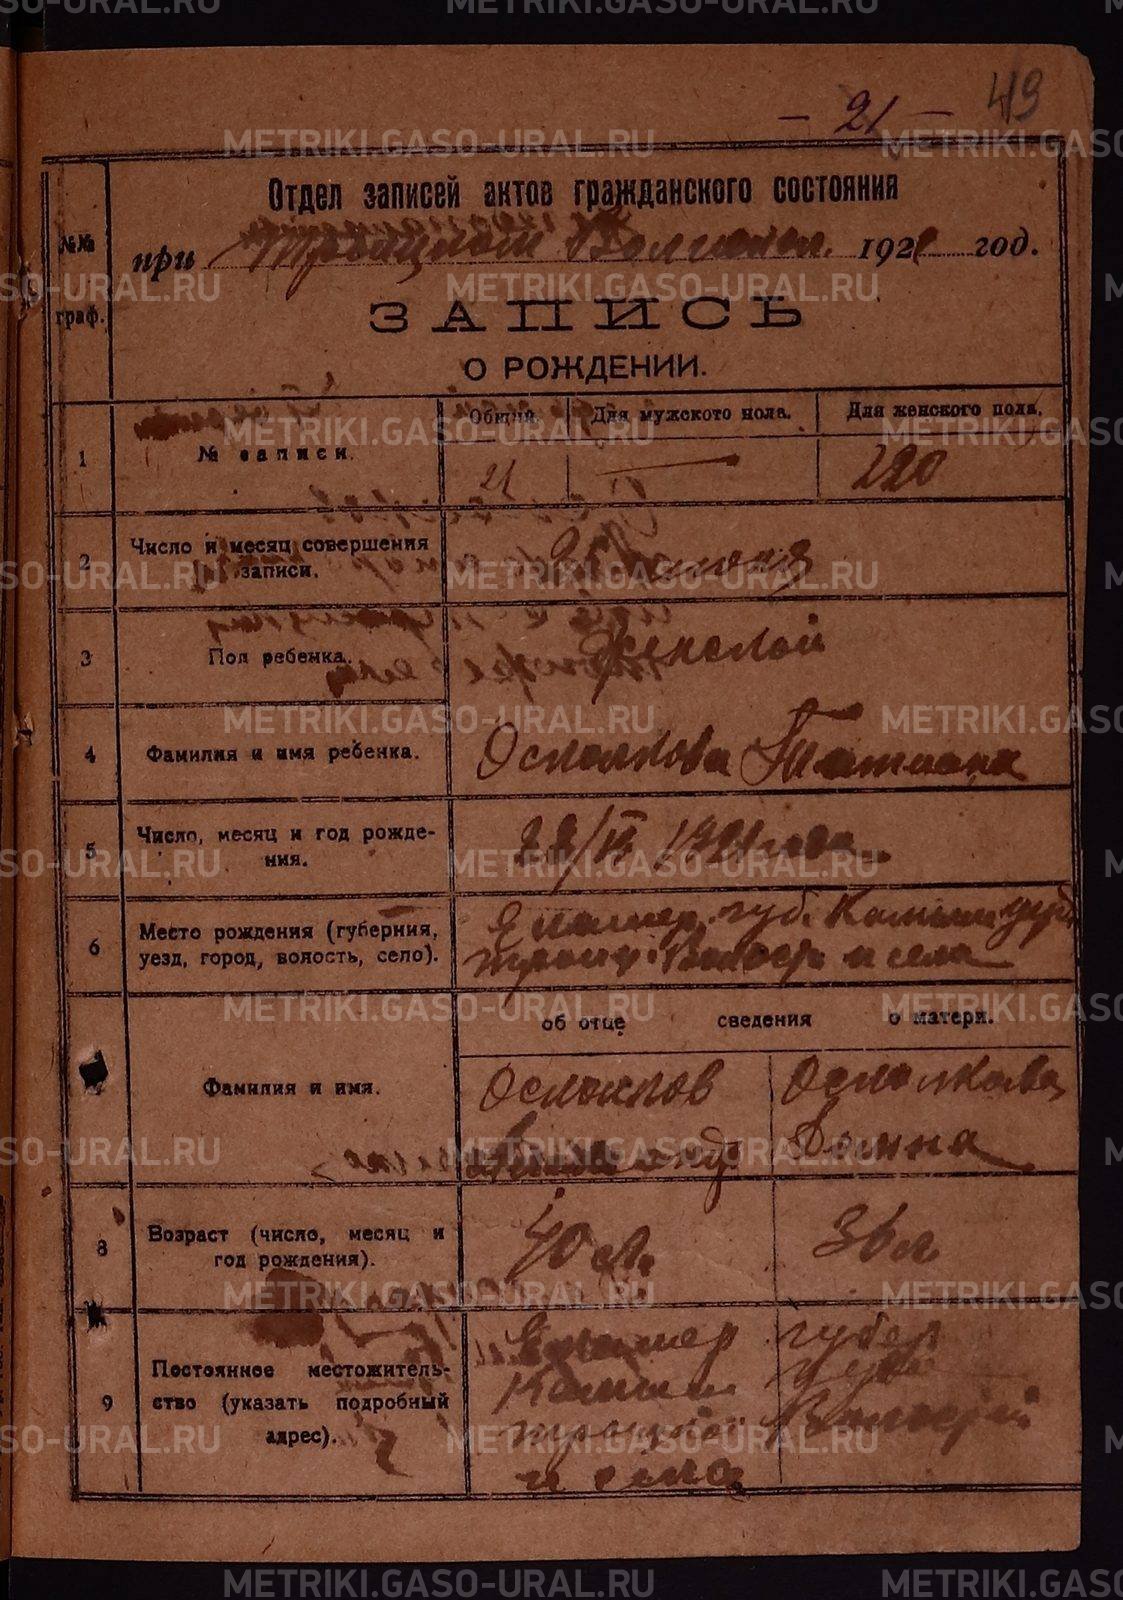 METRIKI.GASO-URAL.RU
- 21 - 49
Отдел записей актов гражданского состояния
№№ граф.
при Троицком Волиспол. 1921 год.
ЗАПИСЬ
О РОЖДЕНИИ.
Общий Для мужского пола. Для женского пола.
1 № записи. 21 —
2 Число и месяц совершения записи. июня
3 Пол ребенка. Женской
4 Фамилия и имя ребенка. Осколкова Татиана
5 Число, месяц и год рождения. 1921 года
6 Место рождения (губерния, уезд, город, волость, село). губ. Камыш уезд
Троиц. Волость и села
об отце сведения о матери.
Фамилия и имя. Осколков Осколкова
Александр Домна
8 Возраст (число, месяц и год рождения). 40 л. 36 л
9 Постоянное местожительство (указать подробный адрес). губер
Камыш уезд
Троицкой Волости
и села